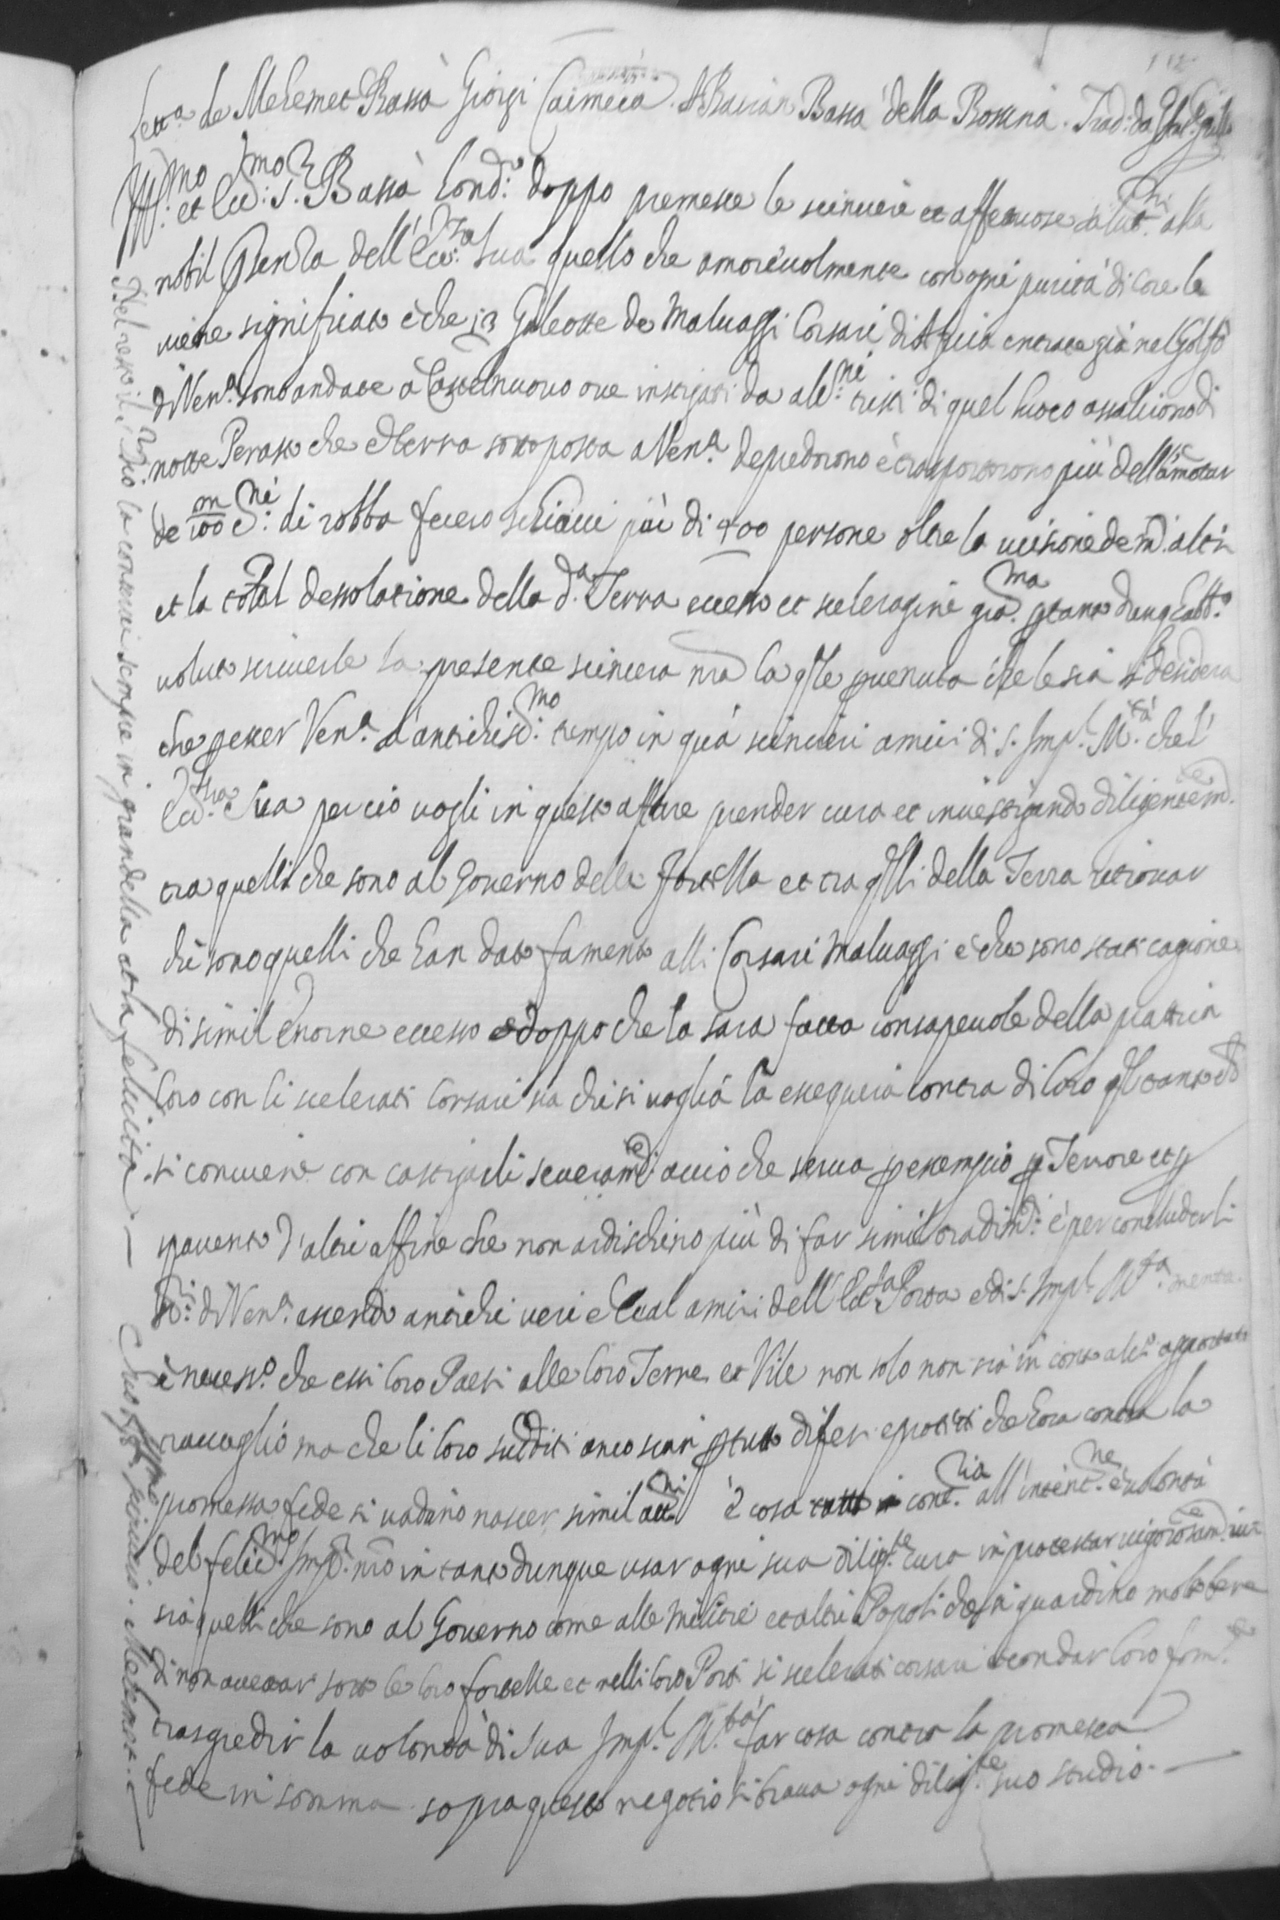 112
Lett.ª de Mehemet Bassà Giorgi Caimecà A Bassan Bassà della Bossina. Trad: da
Ill.mo et Ecc.mo S.r Bassà Cond.o doppo premesse le scincere et affettuose salut.ni alla
nobil Prenza dell'Ecc.za Sua quello che amorevolmente con ogni purità di core le
viene significato è che 13 Galeotte de Malvaggi Corsari di entrate già nel Golfo
di Ven.ª sono andate à Castelnuovo ove instigati da alc.ni tristi di quel luoco assalirono di
notte Perasto che è terra sottoposta a Ven.ª depredorono è trasportorono più dell'
de 100 di robba fecero schiavi più di 400 persone oltre la uccisione de m.ti altri
et la total dessolatione della d.ª Terra eccesso et sceleragine gra.ma p tanto dunq
voluto scriverle la presente scincera nra la qlle pvenuta che le sia si desidera
che p esser Ven.ª d'antichiss.mo tempo in quà scincieri amici di S. Imp.l M.tà che l'
Ecc.tza Sua perciò vogli in questo affare prender cura et investigando diligentem.te
tra quelli che sono al Governo della fortezza et tra qlli della Terra ritrovar
chi sono quelli che han dato fomento alli Corsari Malvaggi è che sono stati cagione
di simil enorme eccesso e doppo che la sara fatta consapevole della prattica
loro con li scelerati Corsari sia chi si voglia la essequirà contra di loro qll tanto ch
si conviene con castigarli severam.te acciò che serva p essempio p Terrore et p
spavento d'altri affine che non ardischino più di far simil tradim.ti è per concluderli
S.ri di Ven.ª essendo antichi veri è leal amici dell'Ecc.sa Porta e di S. Imp.l M.tà
è necess.o che essi loro Paesi alle loro Terre et Vile non solo non sia in conto alc.o apportato
travaglio ma che li loro sudditi anco sian p tutto difesi e protetti che hora contra la
promessa fede si vadino nascer simil att.ni è cosa cont.ria all'intent.ne è volontà
del felic.mo Imp.r nro in tanto dunque usar ogni sua dilig.te cura in protestar vigorosam.te
sia quelli che sono al Governo come alle Militie et altri Popoli che si guardino molto bene
di non accettar sotto le loro fortezze et nelli loro Porti si scelerati corsari et con dar loro fom.to
trasgredir la volontà di Sua Imp.l M.tà far cosa contra la promessa
fede in somma sopra questo negotio si trova ogni dilig.te suo studio.
Nel resto il S. Dio la conservi sempre in grandezza et la felicità Mehemet